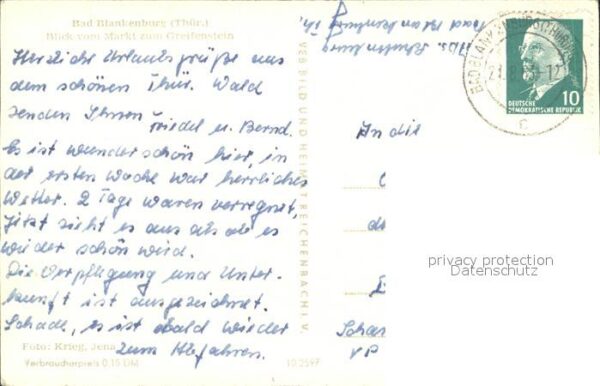 Bad Blankenburg (Thür.)
Blick vom Markt zum Greifenstein
Herzliche Urlaubsgrüße aus
dem schönen Thür. Wald
senden Ihnen
Friedel u. Bernd.
Es ist wunderschön hier, in
der ersten Woche war herrliches
Wetter. 2 Tage waren verregnet,
Jetzt sieht es aus als ob es
wieder schön wird.
Die Verpflegung und Unter-
kunft ist ausgezeichnet.
Schade, es ist bald wieder
zum Abfahren.
Foto: Krieg, Jena
Verbraucherpreis 0,15 DM
10 2597
VEB BILD UND HEIMAT REICHENBACH I. V.
Bad Blankenburg Th.
BAD BLANKENBURG (THÜRINGERW)
c
DEUTSCHE
DEMOKRATISCHE REPUBLIK
10
An die
privacy protection
Datenschutz